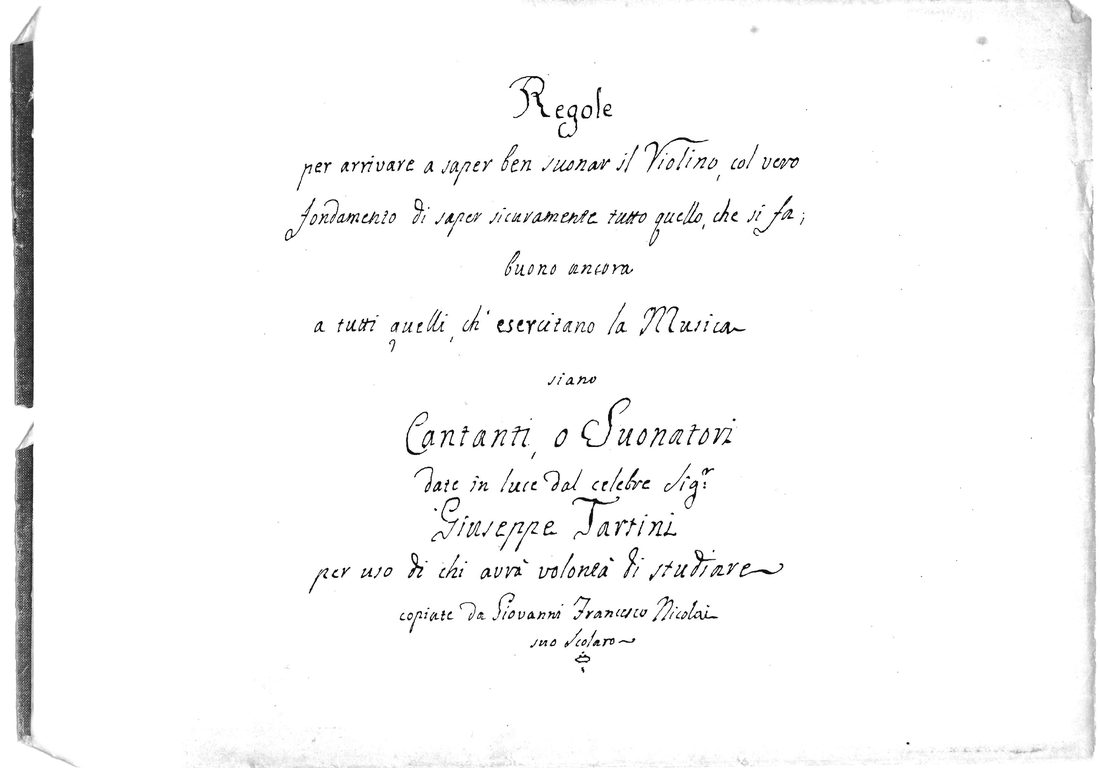 Regole
per arrivare a saper ben suonar il Violino, col vero
fondamento di saper sicuramente tutto quello, che si fa;
buono ancora
a tutti quelli, ch' esercitano la Musica
siano
Cantanti, o Suonatori
date in luce dal celebre Sig.r
Giuseppe Tartini
per uso di chi avrà volontà di studiare
copiate da Giovanni Francesco Nicolai
suo Scolaro